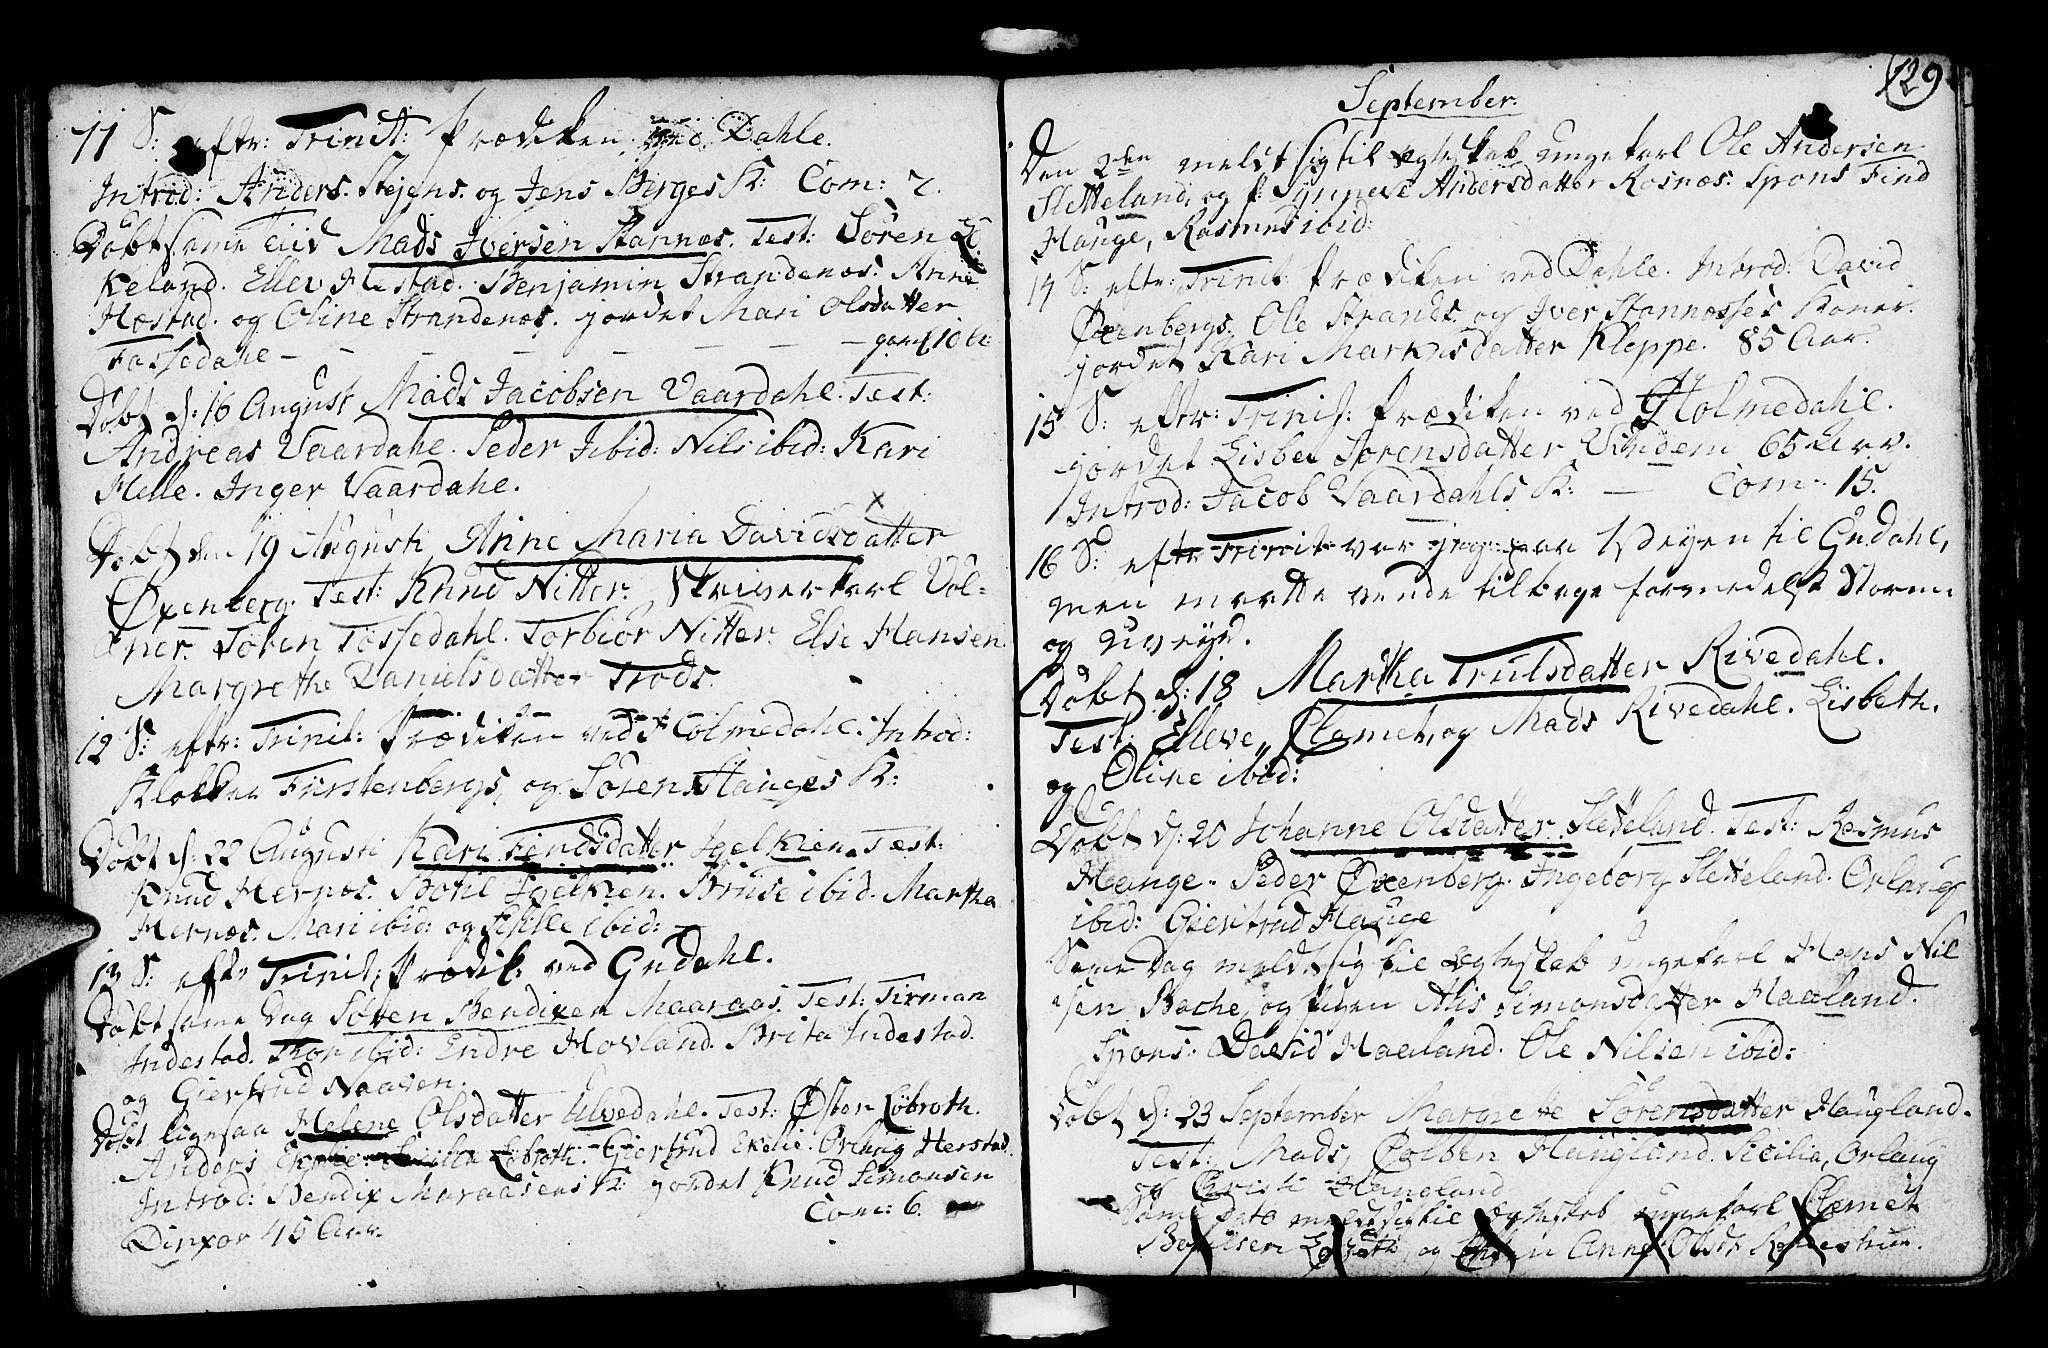 11 S: eftr: Trinit: Prædiken ved Dahle.
Introd: Anders Stejens og Jens Berges K: Com: 2.
Döbt same Tiid Mads Iversen Stannæs. Test: Sören
keland. Ellev Hestad. Benjamin Strandenæs. Anne
Hæstad og Oline Strandenæs. jordet Mari Olsdatter
Fossedahl - - - - - - - gaml 10
Döbt d: 16 August Mads Jacobsen Vaardahl. Test:
Andreas Vaardahl. Peder Ibid: Nils ibid: Kari
Helle. Inger Vaardahl.
Döbt den 19 Augusti Anne Maria Davidsdatter
Øxenberg. Test: Knud Nitter. Skriverkarl Vol=
Sören Tossedahl. Torbiör Nitter. Else Hansen
Margrethe Danielsdatter Trods.
12 S: eftr: Trinit: Prædiken ved Holmedahl. Introd:
Klokker Fürstenbergs, og Sören Hauges K:
Döbt d: 22 Augusti Kari Findsdatter Tielkien. Test:
Knud Hernæs. Botil Tielkien. Bruse ibid. Martha
Hernæs. Mari ibid: og Sille ibid:
13 S: eftr Trinit: Prædik: ved Guddahl.
Döbt same Dag Sören Bendixen Maaraas. Test: Tirman
Indestad. Thor ibid: Endre Hovland. Brita Indestad.
og Giertrud Naaven.
Döbt ligesaa Helene Olsdatter Ulvedahl. Test: Østen Löbroth.
Anders Löbroth. Giertrud Ekelie. Orlaug Herstad.
Introd: Bendix Maraasens K: jordet Knud Simonsen
Dinxor 45 Aar. Com: 6.
129
September.
Den 2den meldt sig til Egteskab ungekarl Ole Andersen
Sletteland, og p: Synneve Andersdatter Rosnæs. Spons Find
Hauge, Rasmus ibid:
14 S: eftr: Trinit: Prædiken ved Dahle. Introd: David
Øxenbergs. Ole Strands og Iver Stannæsses Koner.
jordet Kari Markusdatter Kleppe. 85 Aar.
15 S: eftr: Trinit: Prædiken ved Holmedahl.
jordet Lisbet Sörensdatter Vindem 65 Aar.
Introd: Jacob Vaardahls K: — Com: 15.
16 S: eftr Trinit: var jeg paa Veyen til Gudahl,
men maatte vende tilbage formedelst Storm
og Uveyr.
Döbt d: 18 Martha Trulsdatter Rivedahl.
Test: Elleve, Clemet, og Mads Rivedahl. Lisbeth.
og Oline ibid:
Döbt d: 20 Johanne Olsdatter Sletteland. Test: Rasmus
Hauge. Peder Øxenberg. Ingeborg Sletteland. Orlaug
ibid: Giertrud Hauge
Same Dag meldt sig til Egteskab ungekarl Hans Nil
sen Bache, og pigen Alis Simonsdatter Haaland.
Spons: David Haaland. Ole Nilsen ibid:
Döbt d: 23 September Margrete Sörensdatter Haugland.
Test: Mads, Colben Haugland. Sicilia, Orlaug
og Christi Haugland
Same Dato meldt sig til Egteskab ungekarl Clemet
og Anne Olsdr